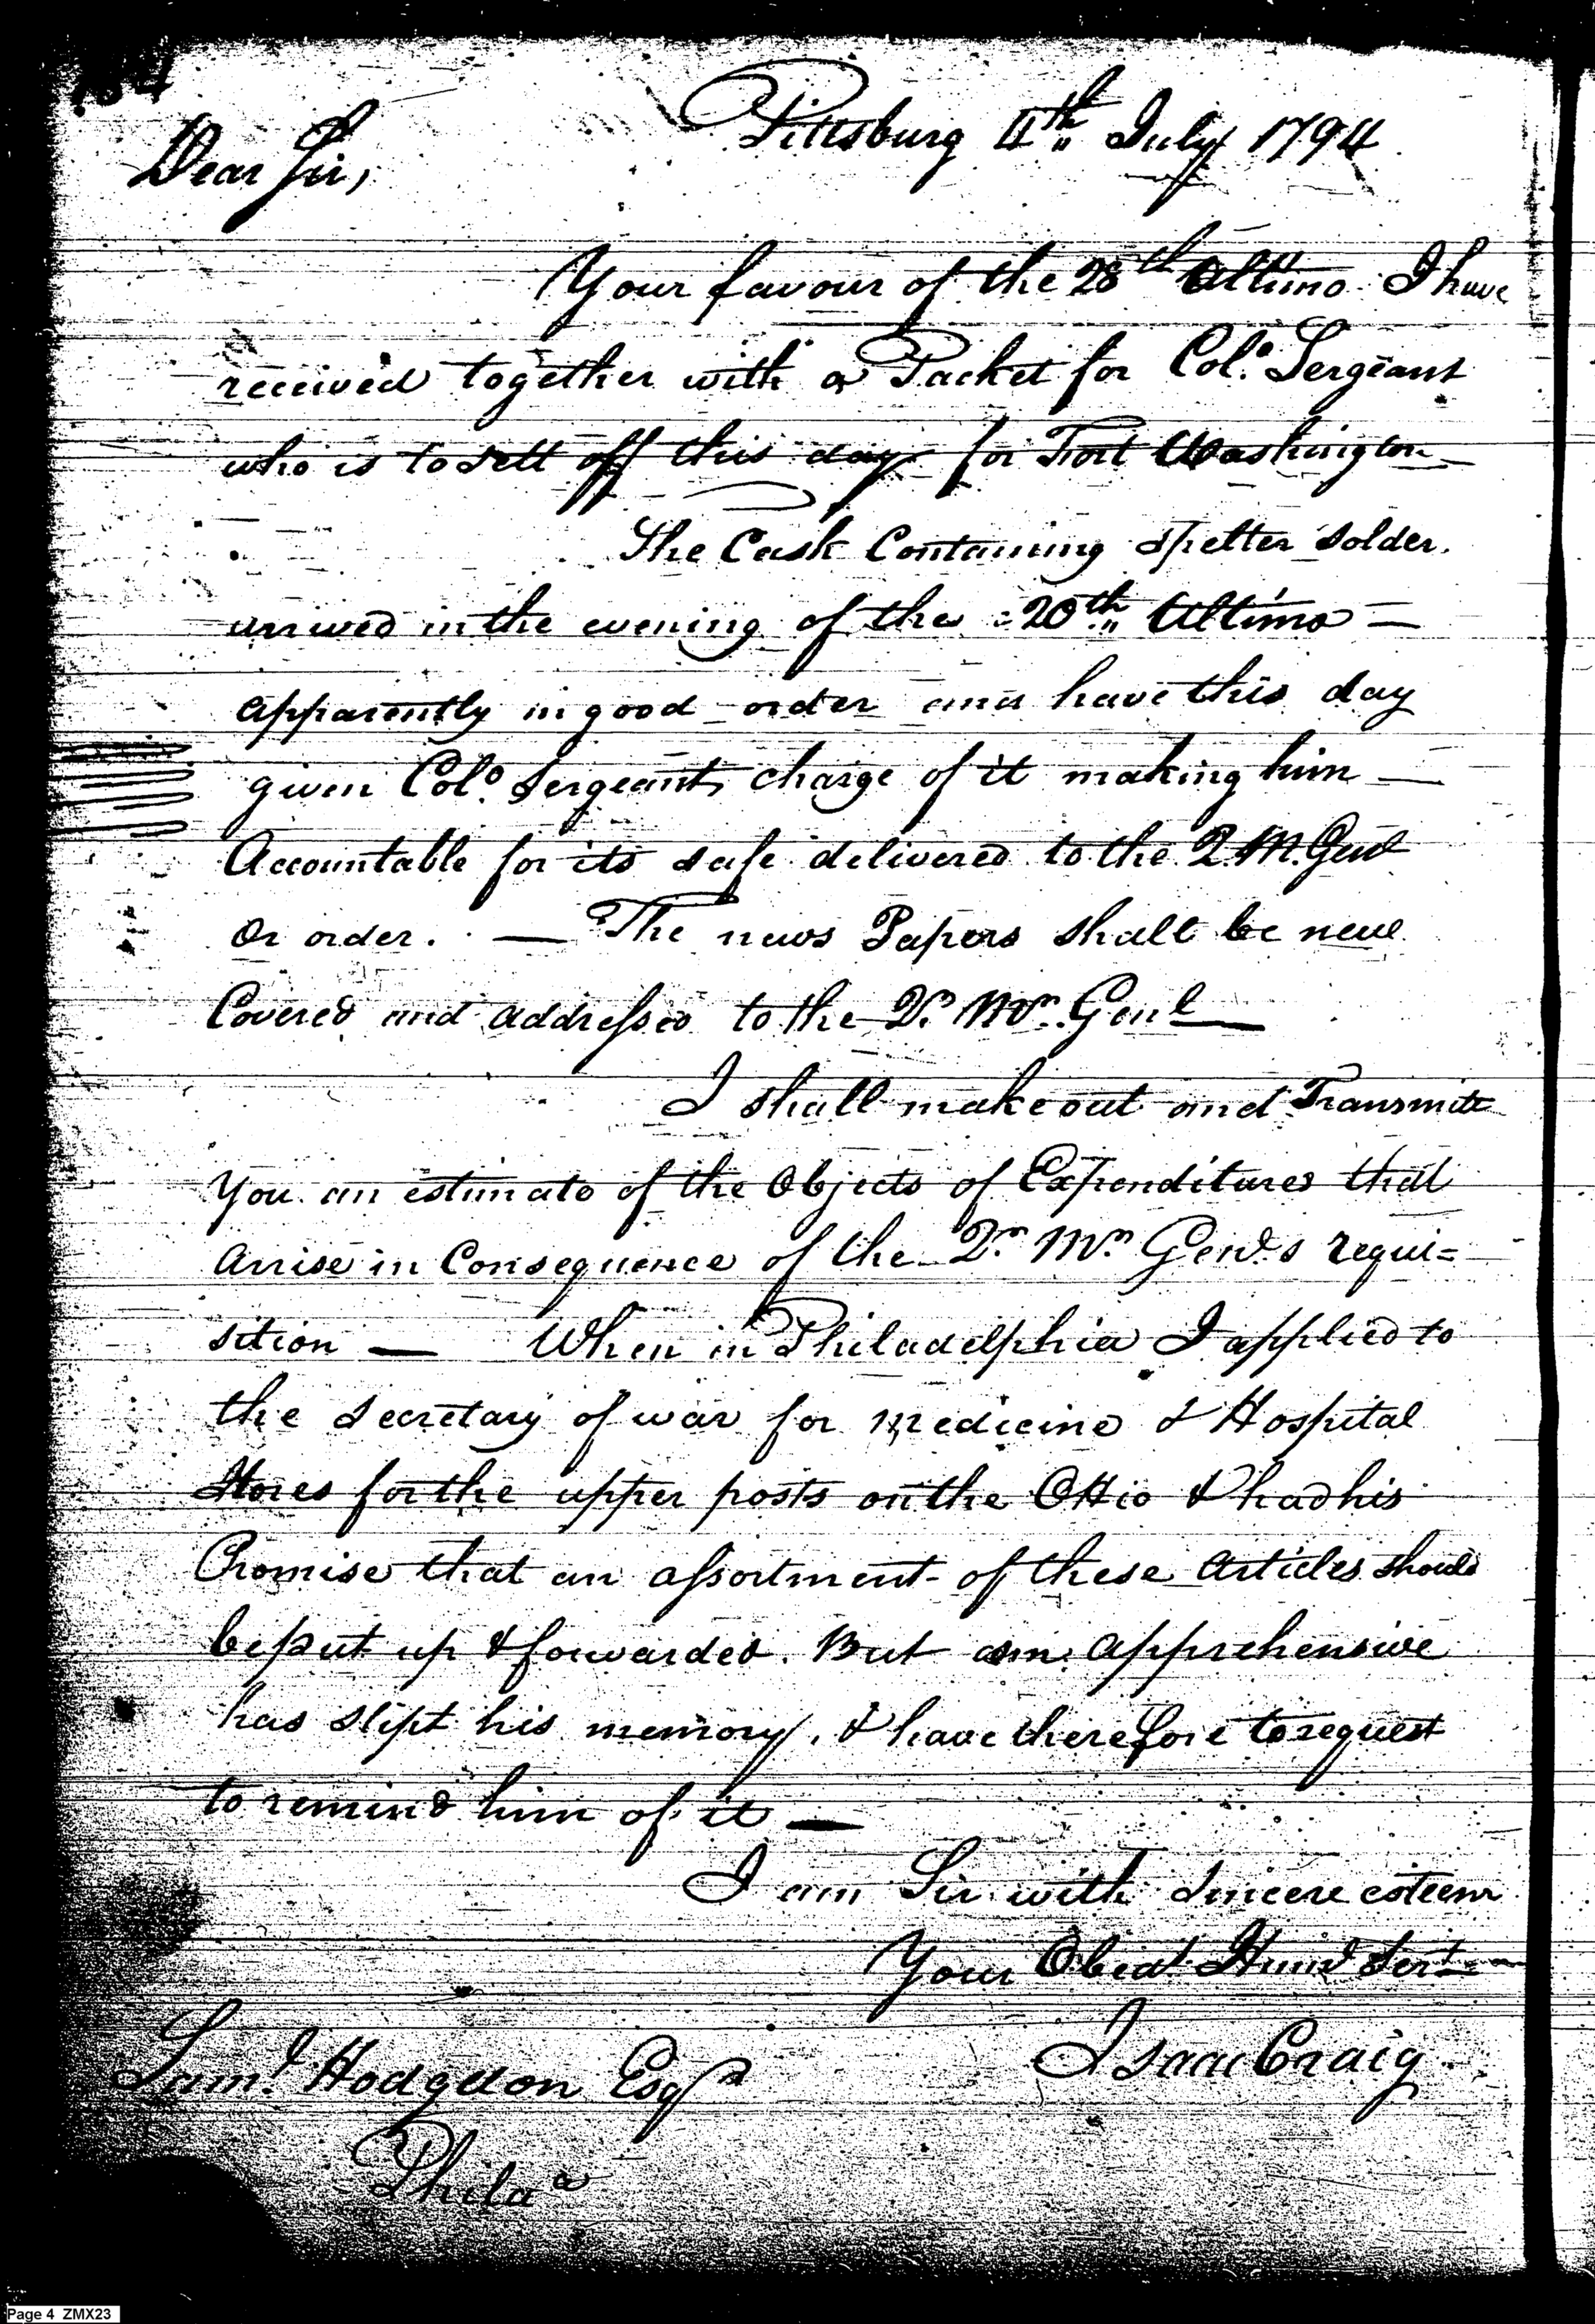 Pittsburg 4th July 1794
Dear Sir,
Your favour of the 28th Ultimo I have
received together with a Packet for Colo. Sergeant
who is to sett off this day for Fort Washington
The Cask Containing spelter solder.
arrived in the evening of the 20th Ultimo —
apparently in good order and have this day
given Colo. Sergeant charge of it making him —
Accountable for its safe delivered to the Q. M. Genl
or order. — The news Papers shall be
Covered and addressed to the Qr. Mr. Genl —
I shall make out and Transmitt
You an estimate of the Objects of Expenditures that
arrise in Consequence of the Qr. Mr. Genl.s requi=
sition — When in Philadelphia I applied to
the secretary of war for medicine & Hospital
Stores for the upper posts on the Ohio & had his
Promise that an assortment of these articles should
be put up & forwarded. But am apprehensive
has slipt his memory, & have therefore to request
to remind him of it —
I am Sir with sincere esteem
Your Obedt Humb Sert
Isaac Craig
Saml. Hodgdon Esqr
Phila
Page 4 ZMX23